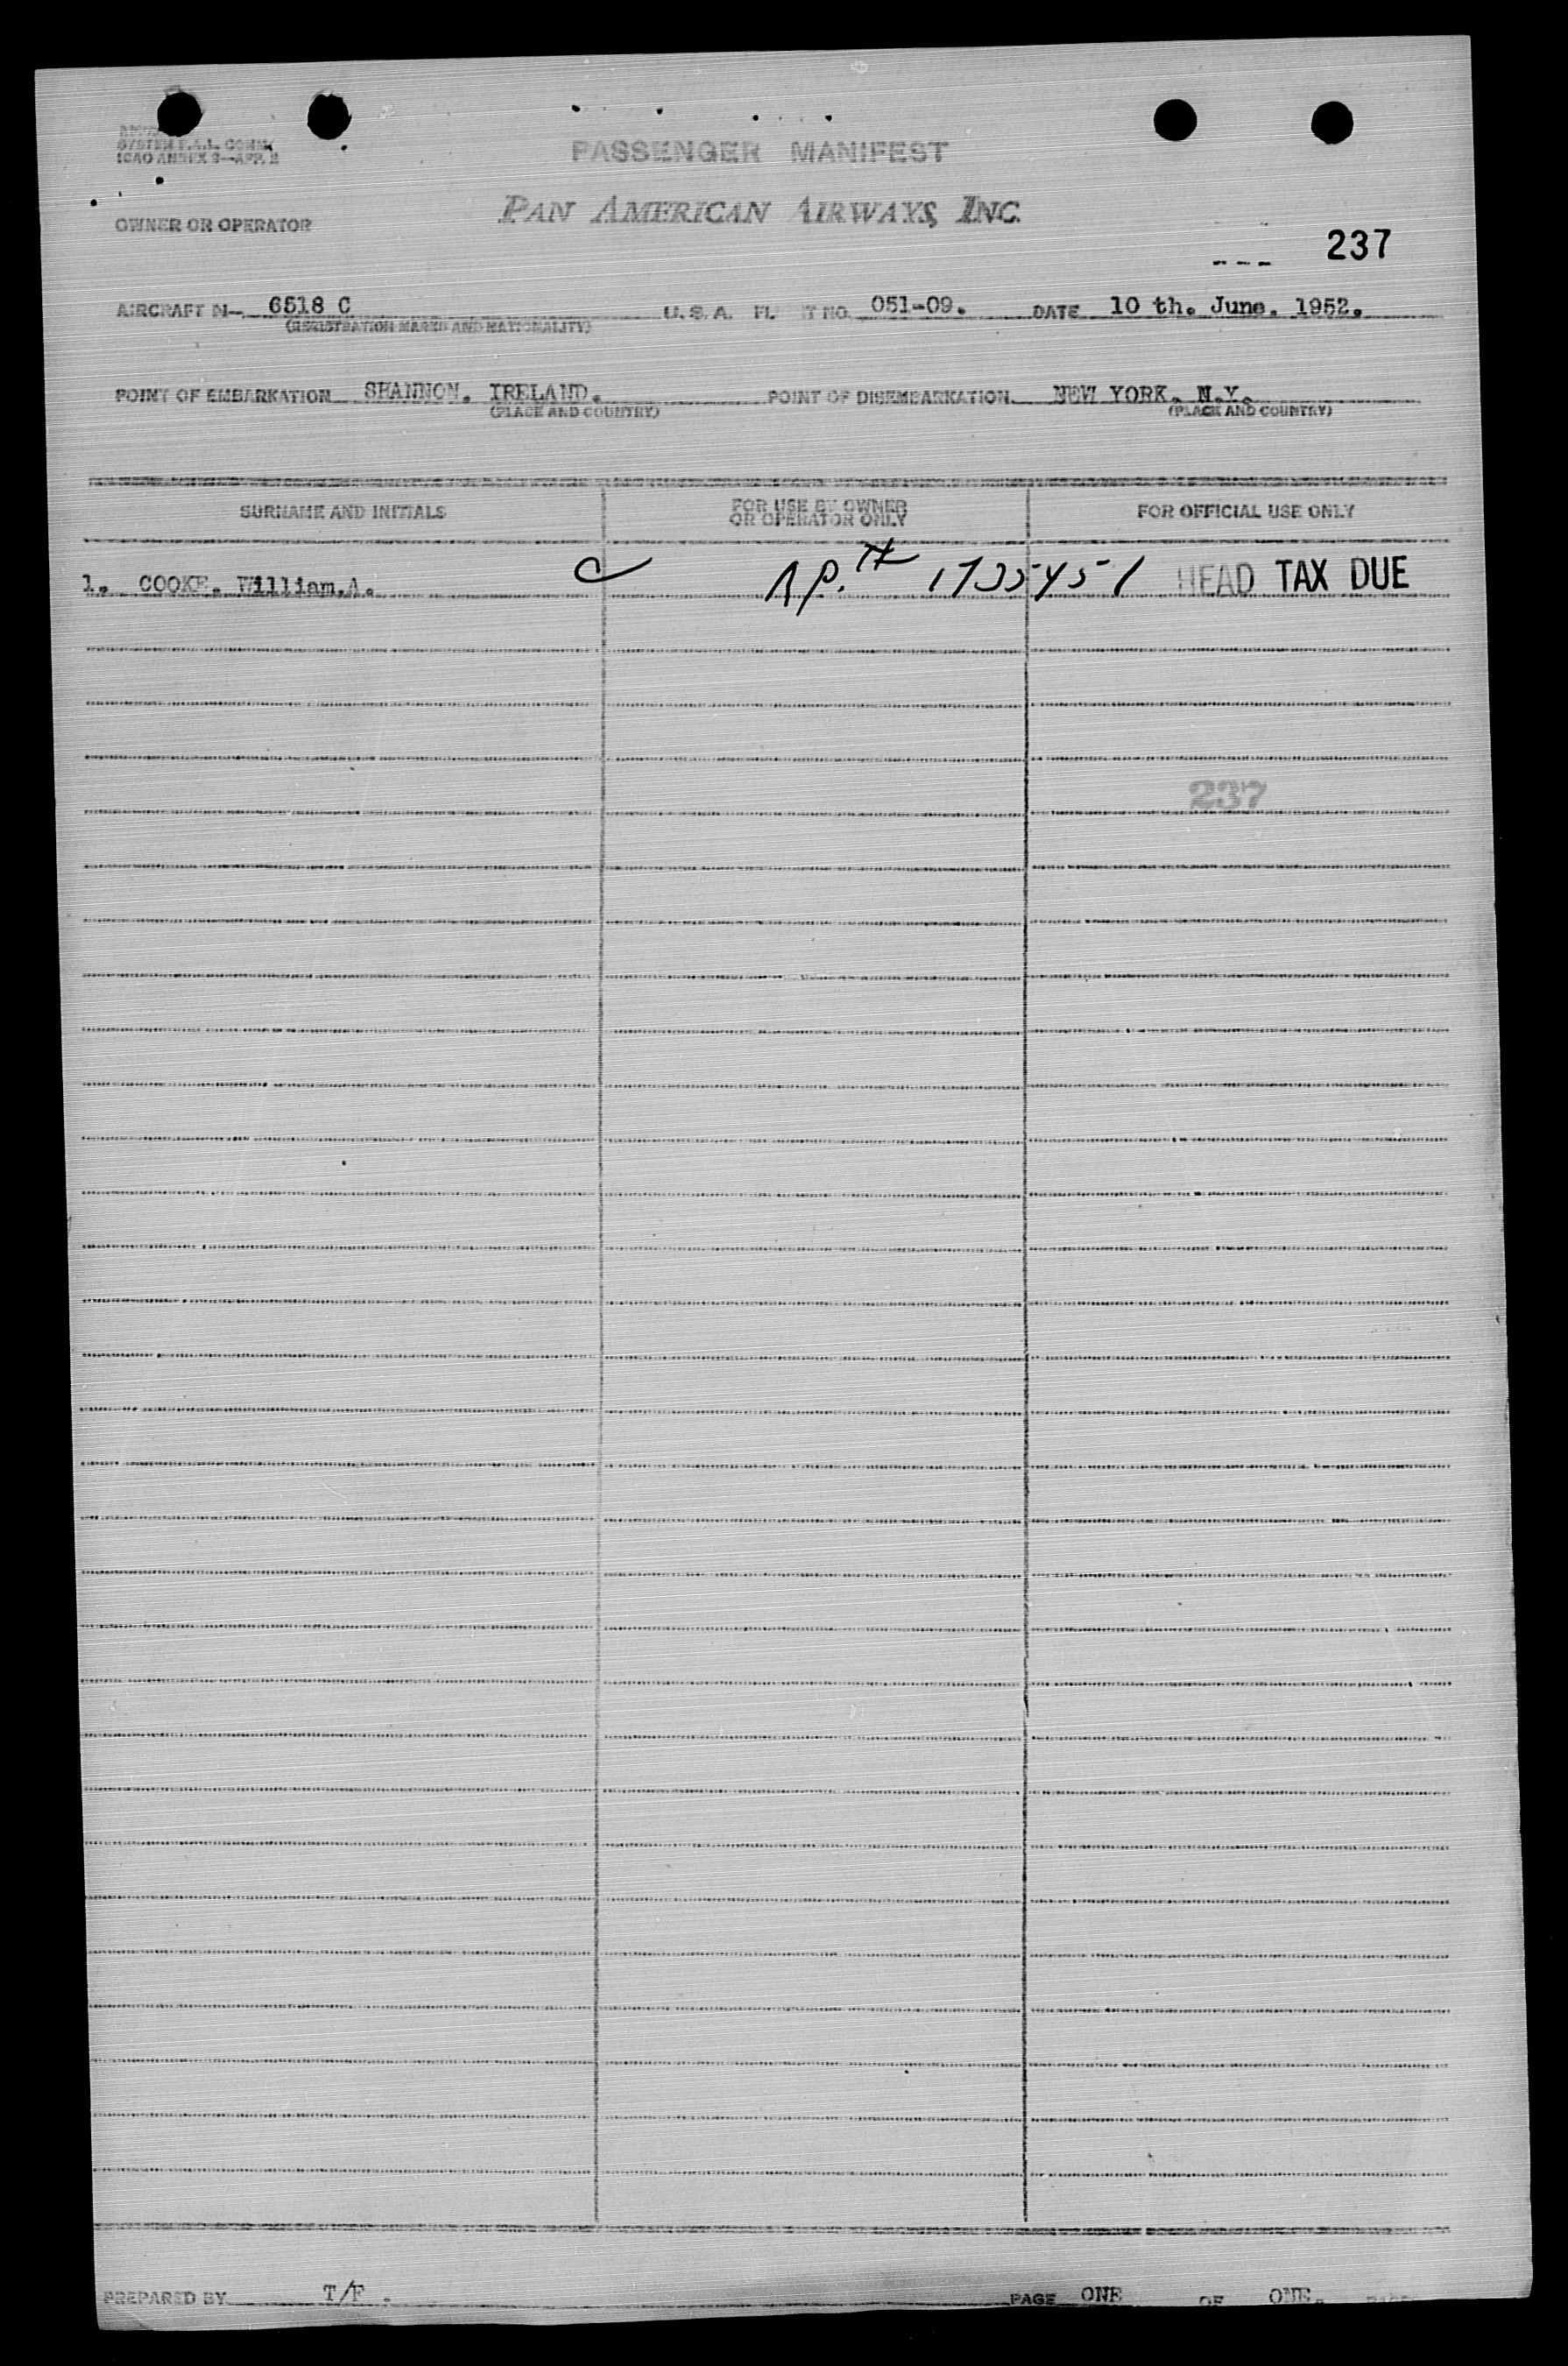 SYSTEM F.A.L. COMM.
ICAO ANNEX 9—APP. 2
PASSENGER MANIFEST
OWNER OR OPERATOR PAN AMERICAN AIRWAYS, INC.
--- 237
AIRCRAFT N- 6518 C U.S.A. FL T NO. 051-09. DATE 10 th. June. 1952.
(REGISTRATION MARKS AND NATIONALITY)
POINT OF EMBARKATION SHANNON. IRELAND. POINT OF DISEMBARKATION NEW YORK. N.Y.
(PLACE AND COUNTRY) (PLACE AND COUNTRY)
SURNAME AND INITIALS FOR USE BY OWNER OR OPERATOR ONLY FOR OFFICIAL USE ONLY
1. COOKE. William.A. C HEAD TAX DUE
237
PREPARED BY T/F . PAGE ONE OF ONE.